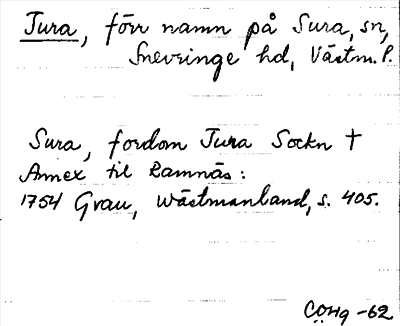 Jura, förr namn på Sura, sn,
Snevringe hd, Västm. l.
Sura, fordom Jura Sockn †
Annex til Ramnäs:
1754 Grau, Wästmanland, s. 405.
COHg -62